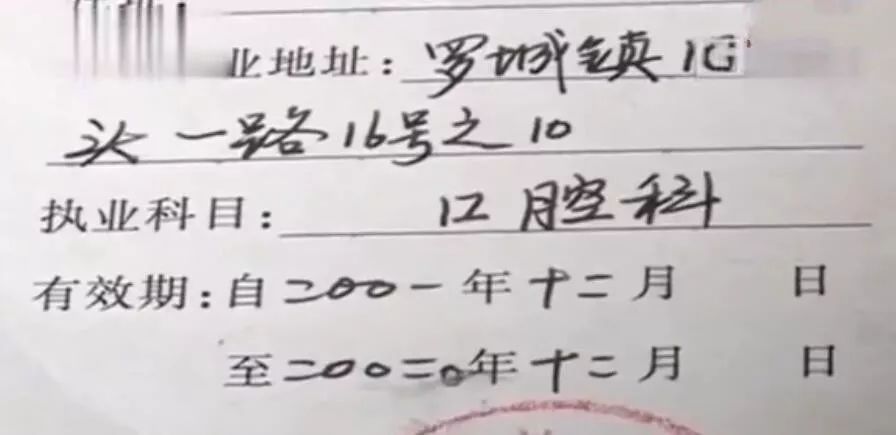 业地址：罗城镇
头一路16号之10
执业科目：口腔科
有效期：自二00一年十二月 日
至二00二0年十二月 日